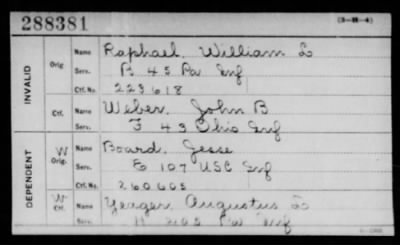 288381 (3-88-4)
INVALID
Orig Name Raphael, William L
Serv. B 45 Pa Inf
Ctf. No. 223618
Ctf. Name Weber, John B
Serv. F 43 Ohio Inf
DEPENDENT
W Orig. Name Board, Jesse
Serv. E 107 USC Inf
Ctf. No. 260605
W Ctf. Name Yeager, Augustus L
Serv. 205 Pa Inf